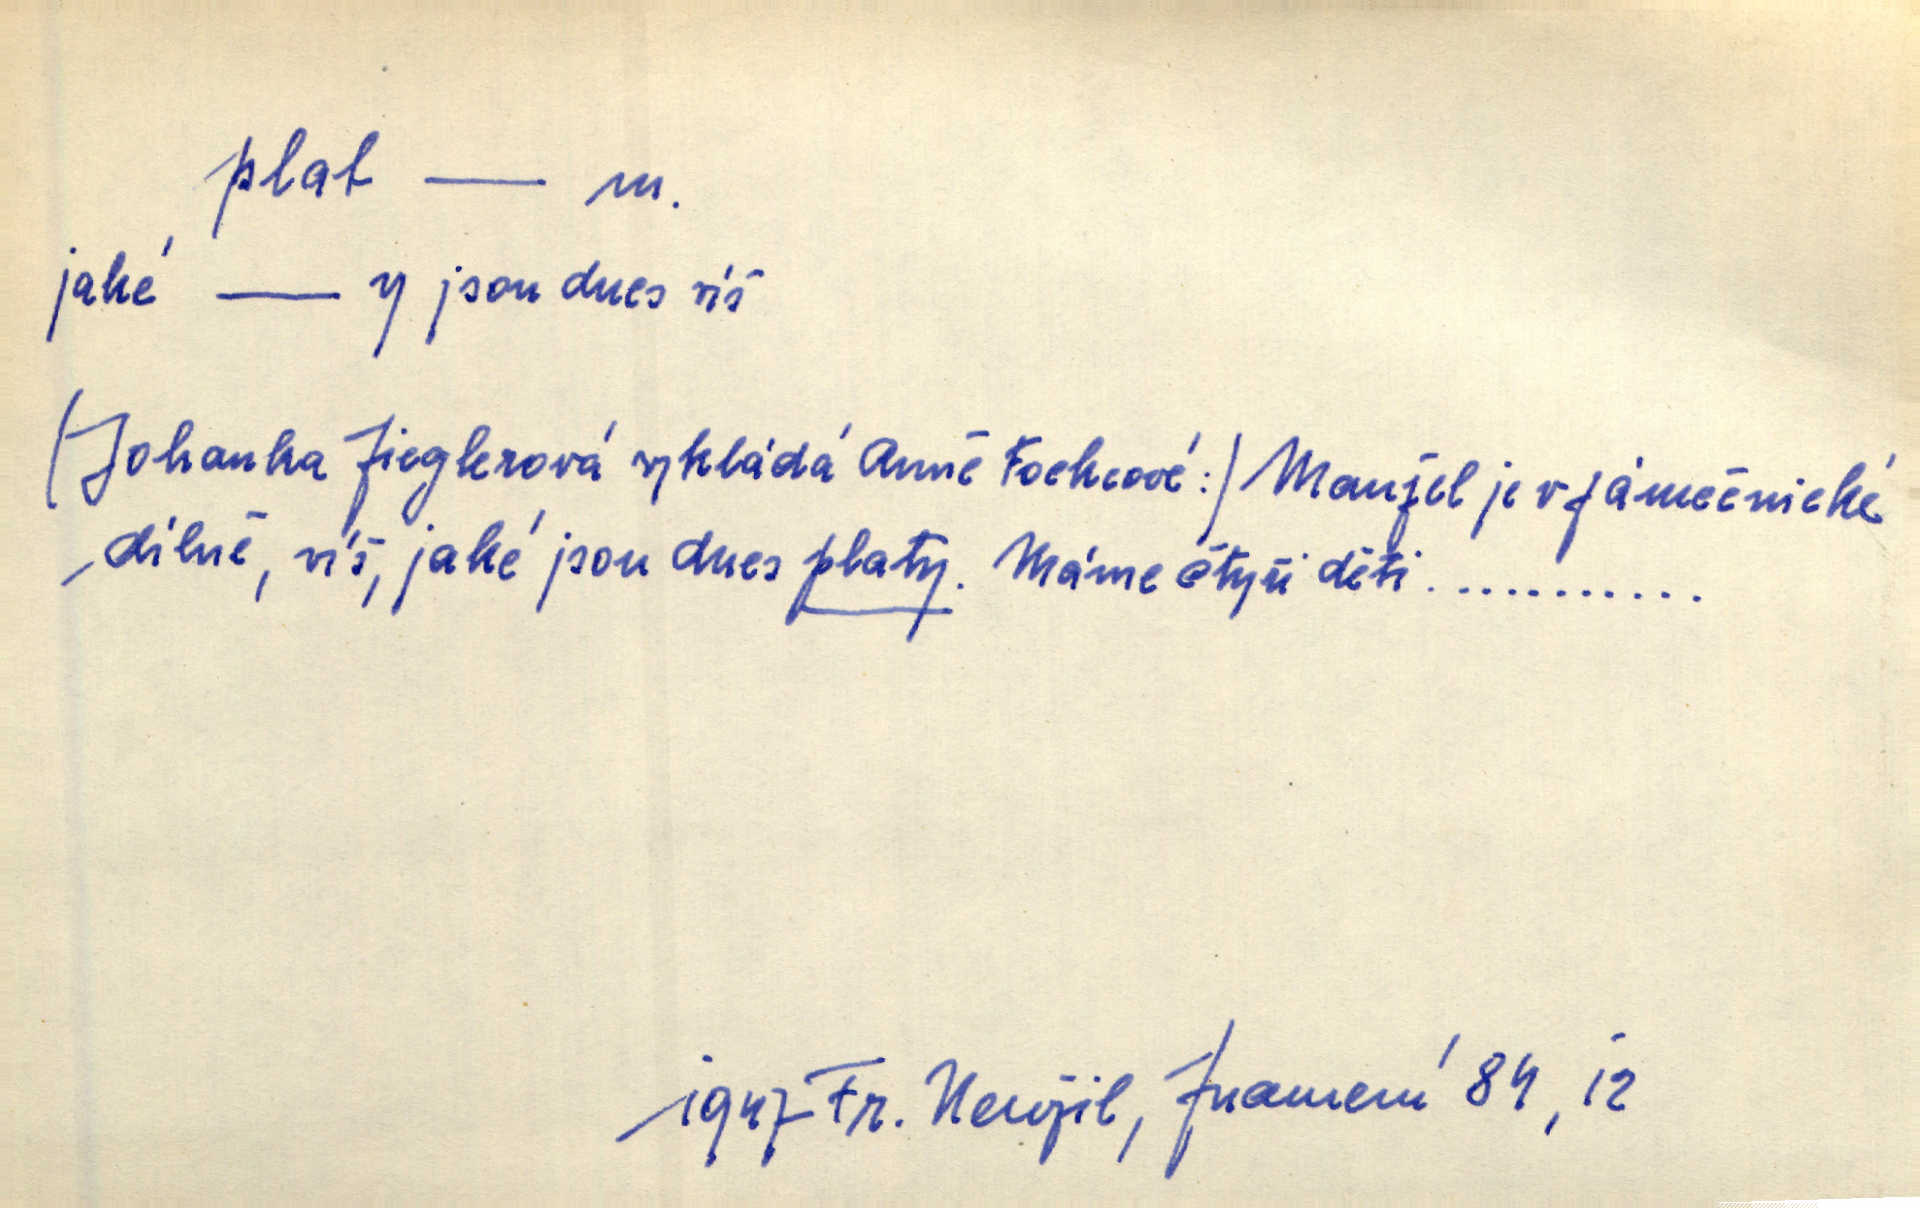 plat — m.
jaké — y jsou dnes víš
(Johanka Zieglerová vykládá Anně :) Manžel je v zámečnické
dílně, víš, jaké jsou dnes platy. Máme čtyři děti...........
1947 Fr. Neužil, Znamení 84, 12